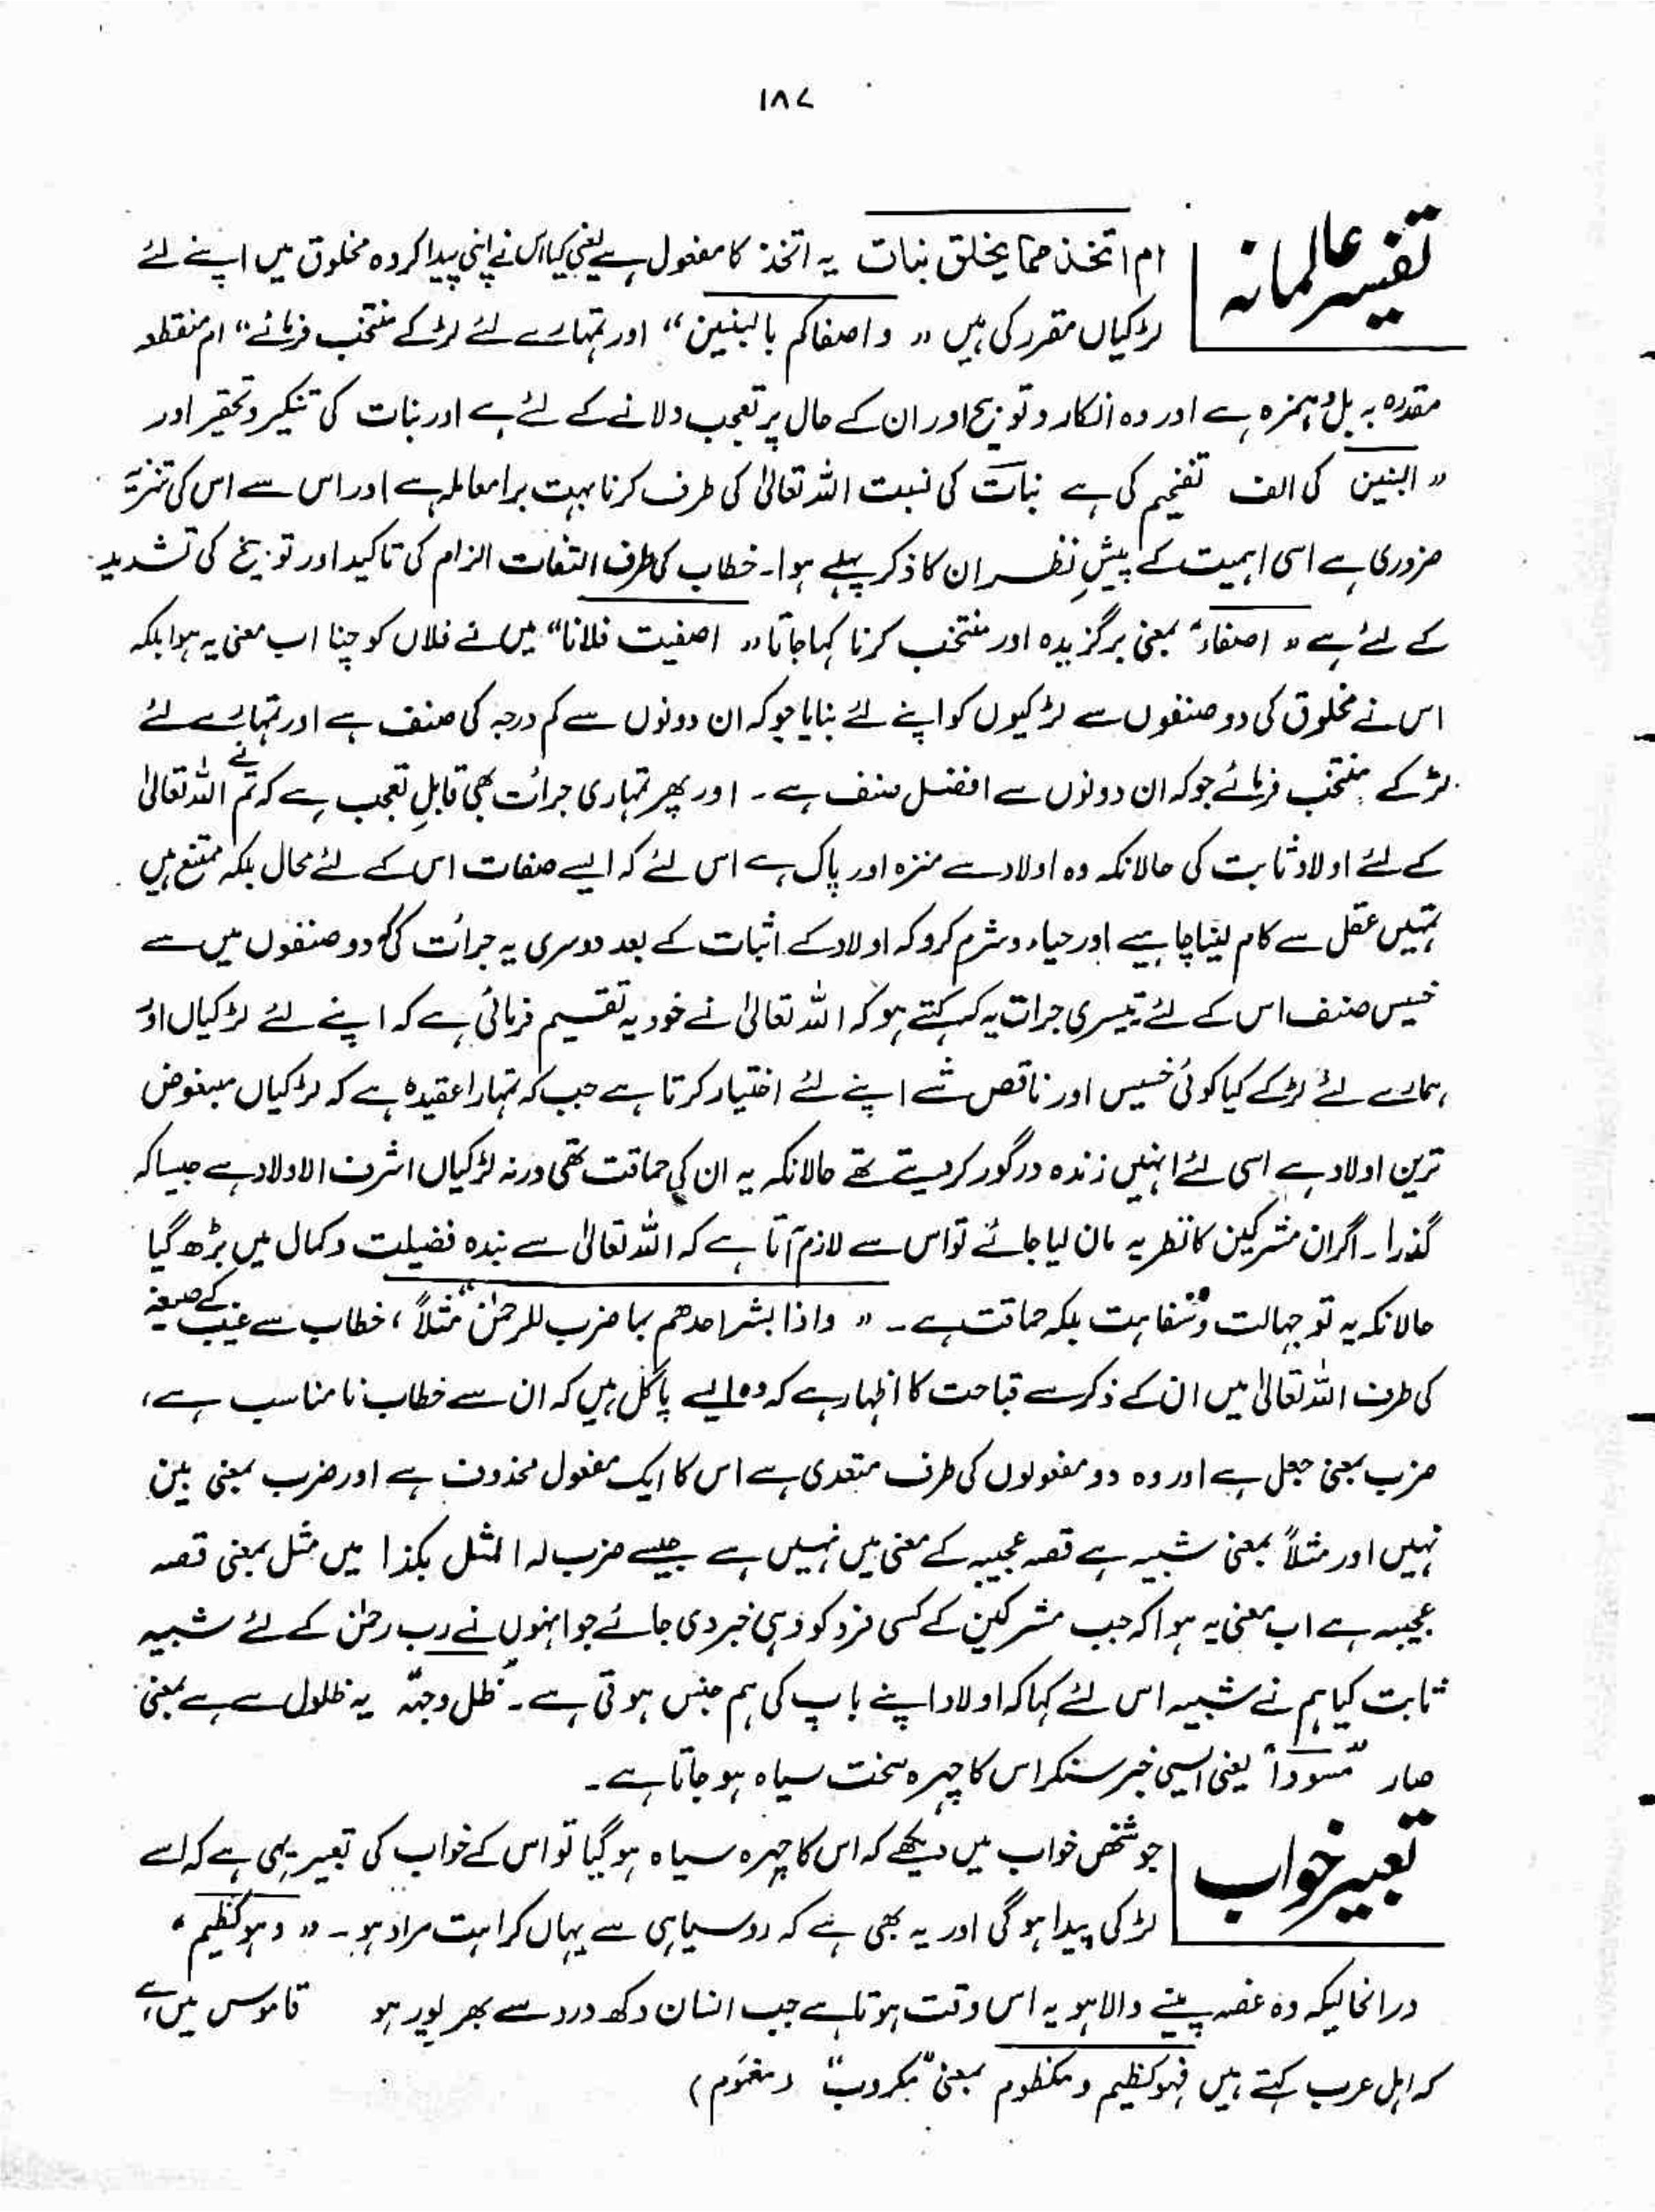 ۱۸۷
تفسیر عالمانہ
ام اتخذ مما یخلق بنات یہ اتخذ کا مفعول ہے یعنی کیا اس نے اپنی پیدا کردہ مخلوق میں اپنے لئے
لڑکیاں مقرر کی ہیں "و اصفاکم بالبنین" اور تمہارے لئے لڑکے منتخب فرمائے" ام منقطعہ
مقدرہ بہ بل و ہمزہ ہے اور وہ انکار و توبیخ اور ان کے حال پر تعجب دلانے کے لئے ہے اور بنات کی تنکیر و تحقیر اور
"البنین کی الف تفخیم کی ہے بنات کی نسبت اللہ تعالیٰ کی طرف کرنا بہت برا معاملہ ہے اور اس سے اس کی تنزیہ
ضروری ہے اسی اہمیت کے پیشِ نظر ان کا ذکر پہلے ہوا۔ خطاب کی طرف التفات الزام کی تاکید اور توبیخ کی تشدید
کے لئے ہے "اصفاء" بمعنی برگزیدہ اور منتخب کرنا کہا جاتا "اصفیت فلانا" میں نے فلاں کو چنا اب معنی یہ ہوا بلکہ
اس نے مخلوق کی دو صنفوں سے لڑکیوں کو اپنے لئے بنایا جو کہ ان دونوں سے کم درجہ کی صنف ہے اور تمہارے لئے
لڑکے منتخب فرمائے جو کہ ان دونوں سے افضل صنف ہے۔ اور پھر تمہاری جرأت بھی قابلِ تعجب ہے کہ تم نے اللہ تعالیٰ
کے لئے اولاد ثابت کی حالانکہ وہ اولاد سے منزہ اور پاک ہے اس لئے کہ ایسے صفات اس کے لئے محال بلکہ ممتنع ہیں
تمہیں عقل سے کام لینا چاہیے اور حیاء و شرم کرو کہ اولاد کے اثبات کے بعد دوسری یہ جرأت کی کہ دو صنفوں میں سے
خسیس صنف اس کے لئے تیسری جرات یہ کہ کہتے ہو کہ اللہ تعالیٰ نے خود یہ تقسیم فرمائی ہے کہ اپنے لئے لڑکیاں اور
ہمارے لئے لڑکے کیا کوئی خسیس اور ناقص شے اپنے لئے اختیار کرتا ہے جب کہ تمہارا عقیدہ ہے کہ لڑکیاں مبغوض
ترین اولاد ہے اسی لئے انہیں زندہ درگور کر دیتے تھے حالانکہ یہ ان کی حماقت تھی ورنہ لڑکیاں اشرف الاولاد ہے جیسا کہ
گذرا۔ اگر ان مشرکین کا نظریہ مان لیا جائے تو اس سے لازم آتا ہے کہ اللہ تعالیٰ سے بندہ فضیلت و کمال میں بڑھ گیا
حالانکہ یہ تو جہالت و سفاہت بلکہ حماقت ہے۔ "واذا بشر احدھم بما ضرب للرحمٰن مثلاً، خطاب سے غیب کے صیغہ
کی طرف اللہ تعالیٰ میں ان کے ذکر سے قباحت کا اظہار ہے کہ وہ ایسے پاگل ہیں کہ ان سے خطاب نا مناسب ہے،
ضرب بمعنی جعل ہے اور وہ دو مفعولوں کی طرف متعدی ہے اس کا ایک مفعول محذوف ہے اور ضرب بمعنی بین
نہیں اور مثلاً بمعنی شبیہ ہے قصہ عجیبہ کے معنی میں نہیں ہے جیسے ضرب لہ المثل بکذا میں مثل بمعنی قصہ
عجیبہ ہے اب معنی یہ ہوا کہ جب مشرکین کے کسی فرد کو وہی خبر دی جائے جو انہوں نے رب رحمٰن کے لئے شبیہ
ثابت کیا ہم نے شبیہ اس لئے کہا کہ اولاد اپنے باپ کی ہم جنس ہوتی ہے۔ "ظل وجہہ یہ ظلول سے ہے بمعنی
صار "مسودا" یعنی ایسی خبر سنکر اس کا چہرہ سخت سیاہ ہو جاتا ہے۔
تعبیر خواب
جو شخص خواب میں دیکھے کہ اس کا چہرہ سیاہ ہو گیا تو اس کے خواب کی تعبیر یہی ہے کہ اسے
لڑکی پیدا ہو گی اور یہ بھی ہے کہ رو سیاہی سے یہاں کراہت مراد ہو۔ "وہو کظیم"
درانحالیکہ وہ غصہ پینے والا ہو یہ اس وقت ہوتا ہے جب انسان دکھ درد سے بھر پور ہو قاموس میں ہے
کہ اہل عرب کہتے ہیں فہو کظیم و مکظوم بمعنی "مکروب" (مغموم)